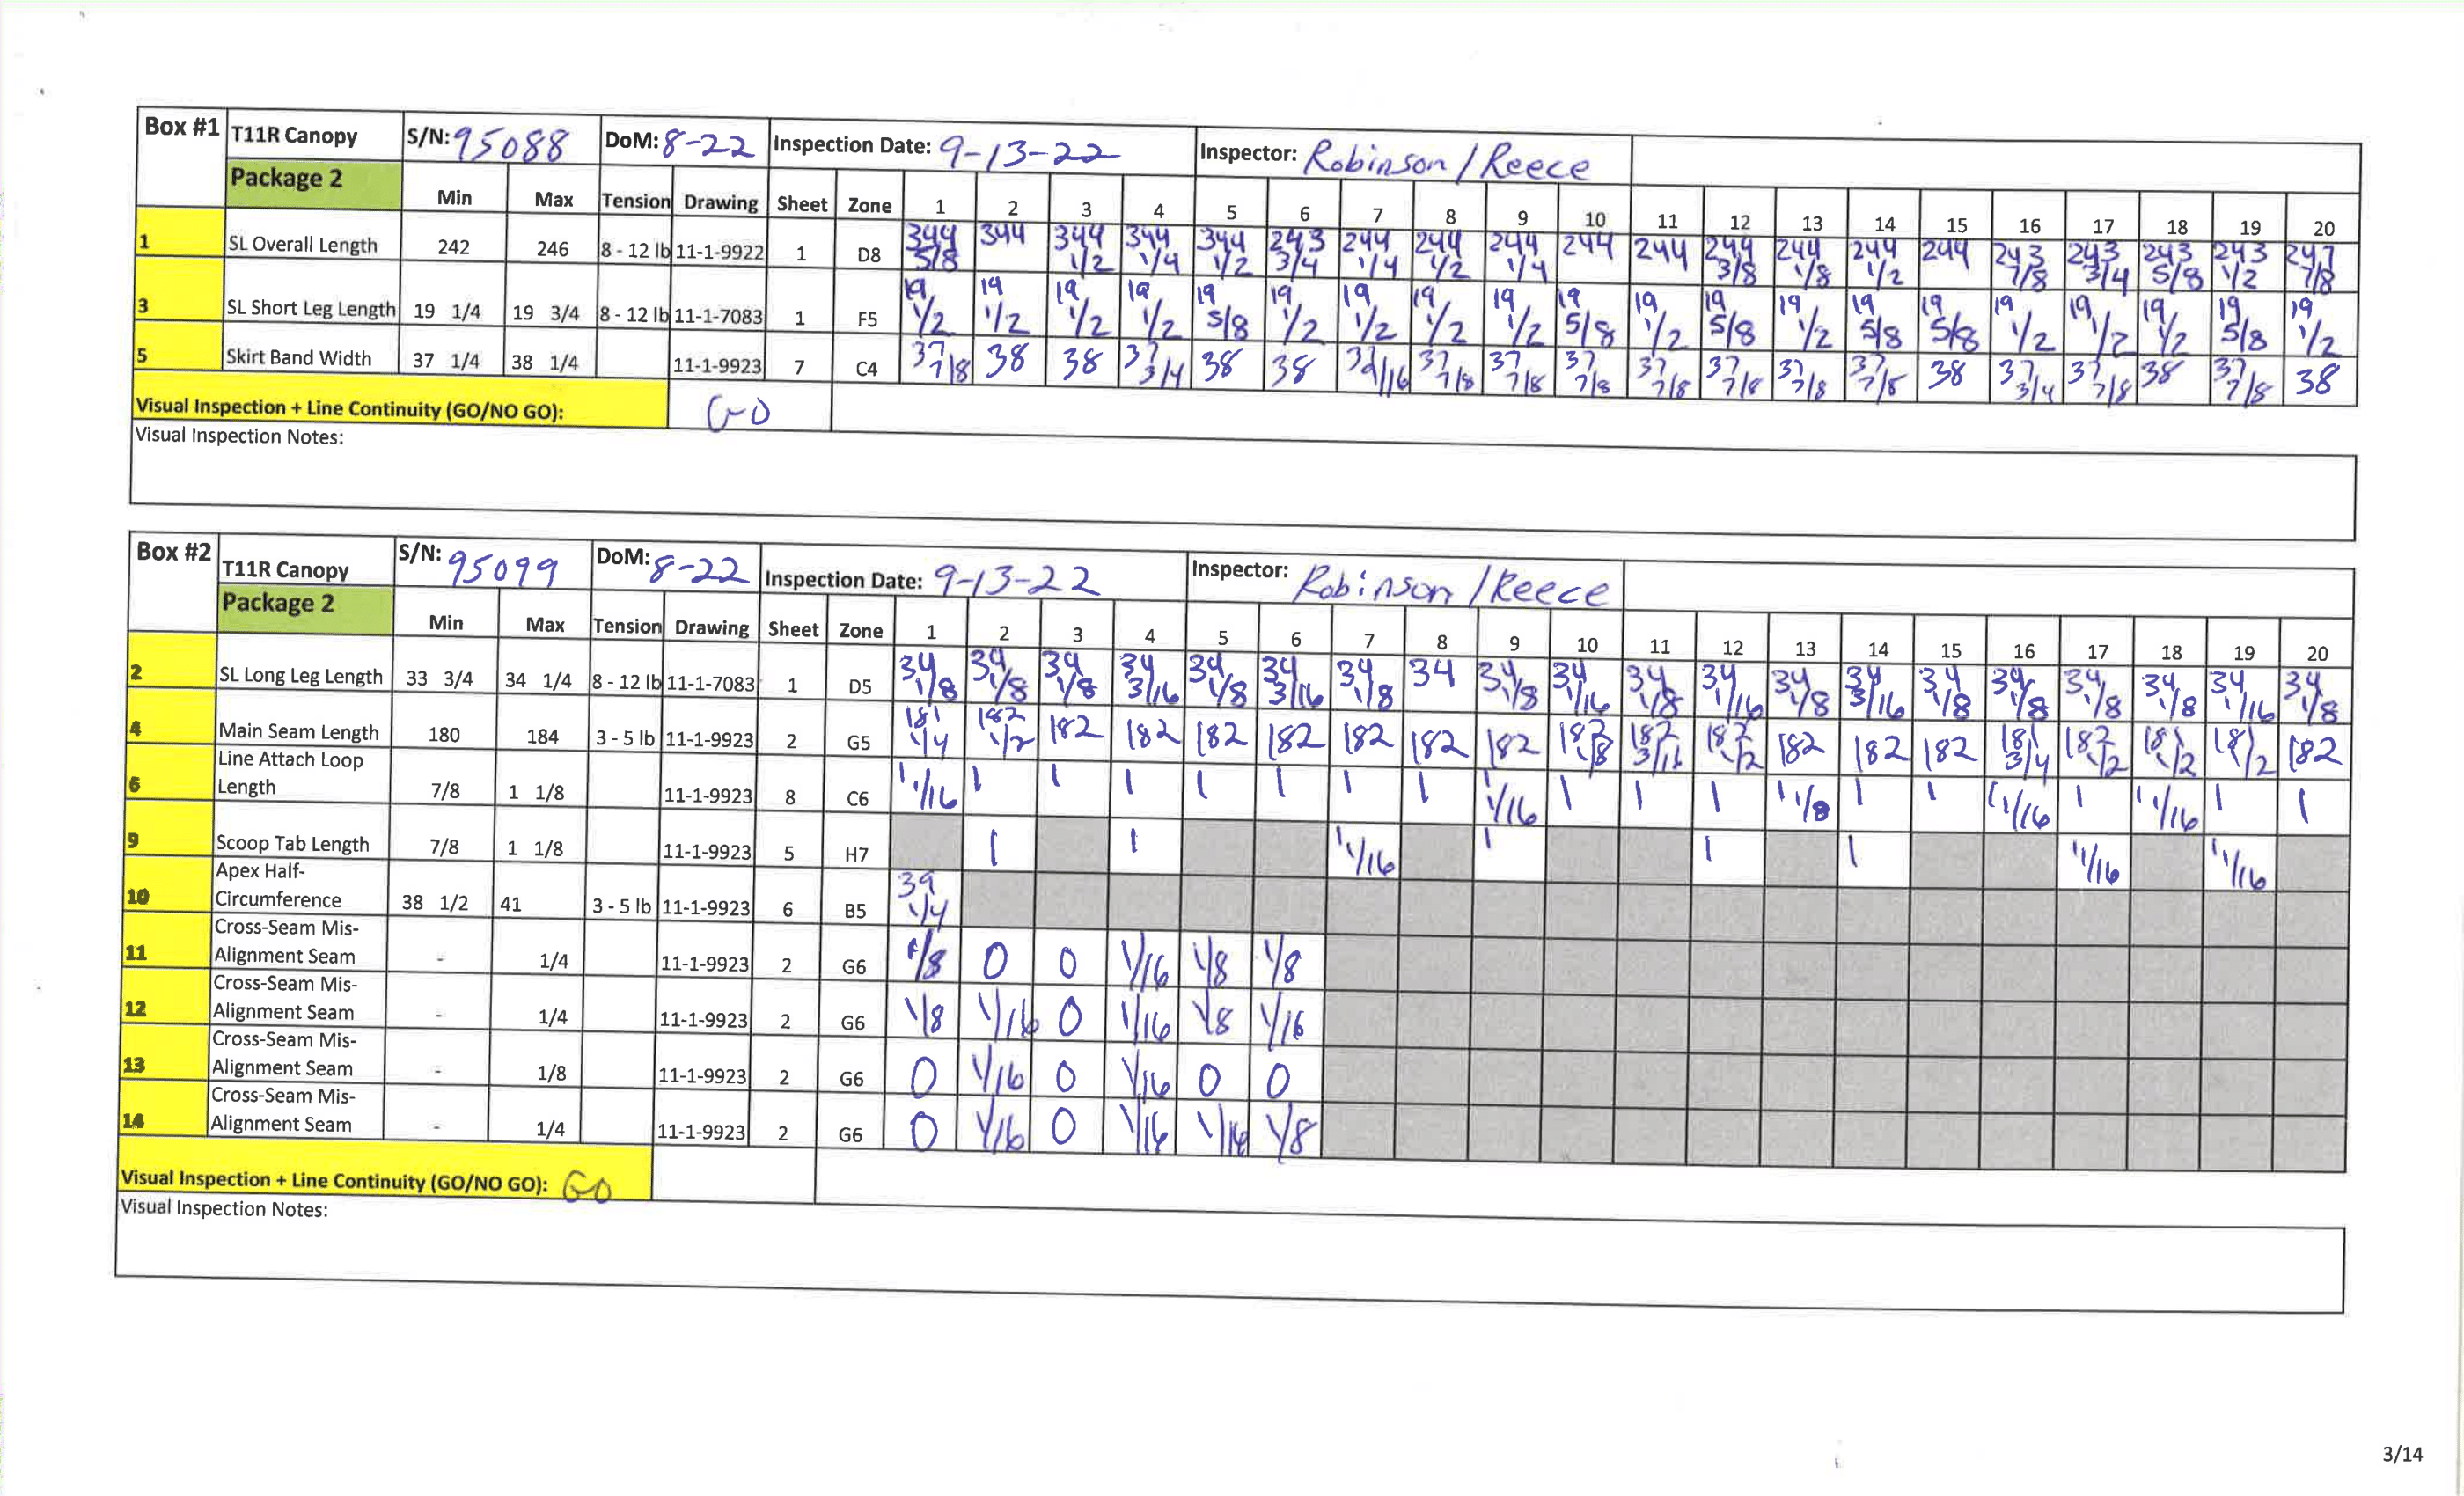 Box #1 T11R Canopy S/N: 95088 DoM: 8-22 Inspection Date: 9-13-22 Inspector: Robinson / Reece
Package 2 Min Max Tension Drawing Sheet Zone 1 2 3 4 5 6 7 8 9 10 11 12 13 14 15 16 17 18 19 20
1 SL Overall Length 242 246 8 - 12 lb 11-1-9922 1 D8 344 5/8 344 344 1/2 344 1/4 344 1/2 243 3/4 244 1/4 244 1/2 244 1/4 244 244 244 3/8 244 1/8 244 1/2 244 243 7/8 243 3/4 243 5/8 243 1/2 247 7/8
3 SL Short Leg Length 19 1/4 19 3/4 8 - 12 lb 11-1-7083 1 F5 19 1/2 19 1/2 19 1/2 19 1/2 19 5/8 19 1/2 19 1/2 19 1/2 19 1/2 19 5/8 19 1/2 19 5/8 19 1/2 19 5/8 19 5/8 19 1/2 19 1/2 19 1/2 19 5/8 19 1/2
5 Skirt Band Width 37 1/4 38 1/4 11-1-9923 7 C4 37 7/8 38 38 37 3/4 38 38 37 7/8 37 7/8 37 7/8 37 7/8 37 7/8 37 7/8 37 7/8 38 37 3/4 37 7/8 38 37 7/8 38
Visual Inspection + Line Continuity (GO/NO GO): GO
Visual Inspection Notes:
Box #2 T11R Canopy S/N: 95099 DoM: 8-22 Inspection Date: 9-13-22 Inspector: Robinson / Reece
Package 2 Min Max Tension Drawing Sheet Zone 1 2 3 4 5 6 7 8 9 10 11 12 13 14 15 16 17 18 19 20
2 SL Long Leg Length 33 3/4 34 1/4 8 - 12 lb 11-1-7083 1 D5 34 1/8 34 1/8 34 1/8 34 3/16 34 1/8 34 3/16 34 1/8 34 34 1/8 34 1/16 34 1/8 34 1/16 34 1/8 34 3/16 34 1/8 34 1/8 34 1/8 34 1/8 34 1/16 34 1/8
4 Main Seam Length 180 184 3 - 5 lb 11-1-9923 2 G5 181 1/4 182 1/2 182 182 182 182 182 182 182 182 1/8 182 3/16 182 1/2 182 182 182 181 3/4 182 1/2 181 1/2 181 1/2 182
6 Line Attach Loop Length 7/8 1 1/8 11-1-9923 8 C6 1 1/16 1 1 1 1 1 1 1 1 1/16 1 1 1 1 1/8 1 1 1 1/16 1 1 1/16 1 1
9 Scoop Tab Length 7/8 1 1/8 11-1-9923 5 H7 1 1 1 1/16 1 1 1 1 1/16 1 1/16
10 Apex Half-Circumference 38 1/2 41 3 - 5 lb 11-1-9923 6 B5 39 1/4
11 Cross-Seam Mis-Alignment Seam - 1/4 11-1-9923 2 G6 1/8 0 0 1/16 1/8 1/8
12 Cross-Seam Mis-Alignment Seam - 1/4 11-1-9923 2 G6 1/8 1/16 0 1/16 1/8 1/16
13 Cross-Seam Mis-Alignment Seam - 1/8 11-1-9923 2 G6 0 1/16 0 1/16 0 0
14 Cross-Seam Mis-Alignment Seam - 1/4 11-1-9923 2 G6 0 1/16 0 1/16 1/16 1/8
Visual Inspection + Line Continuity (GO/NO GO): GO
Visual Inspection Notes:
3/14